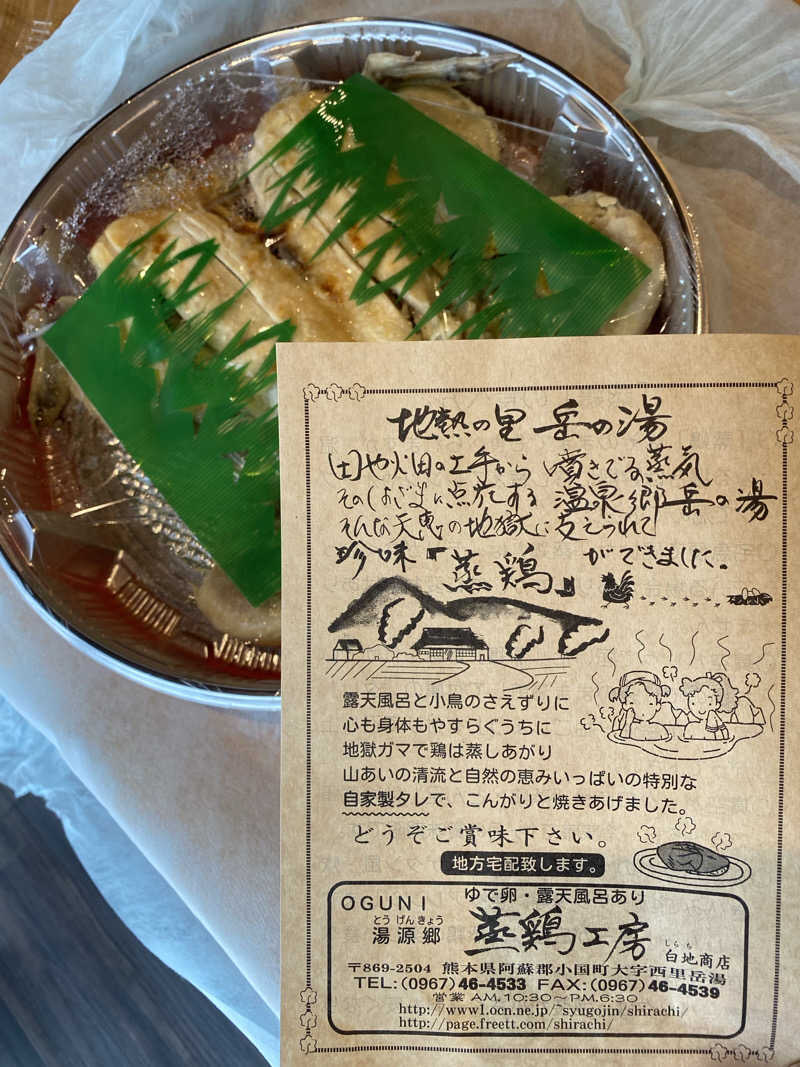 地熱の里 岳の湯
田や火田の土手から 噴きでる蒸気
そのはざまに点在する 温泉郷岳の湯
そんな天恵の地獄に支えられて
珍味『蒸鶏』ができました。
露天風呂と小鳥のさえずりに
心も身体もやすらぐうちに
地獄ガマで鶏は蒸しあがり
山あいの清流と自然の恵みいっぱいの特別な
自家製タレで、こんがりと焼きあげました。
どうぞご賞味下さい。
地方宅配致します。
OGUNI ゆで卵・露天風呂あり
とうげんきょう
湯源郷 蒸鶏工房
しらち
白地商店
〒869-2504 熊本県阿蘇郡小国町大字西里岳湯
TEL:(0967)46-4533 FAX:(0967)46-4539
営業 AM.10:30〜PM.6:30
http://www1.ocn.ne.jp/~syugojin/shirachi/
http://page.freett.com/shirachi/